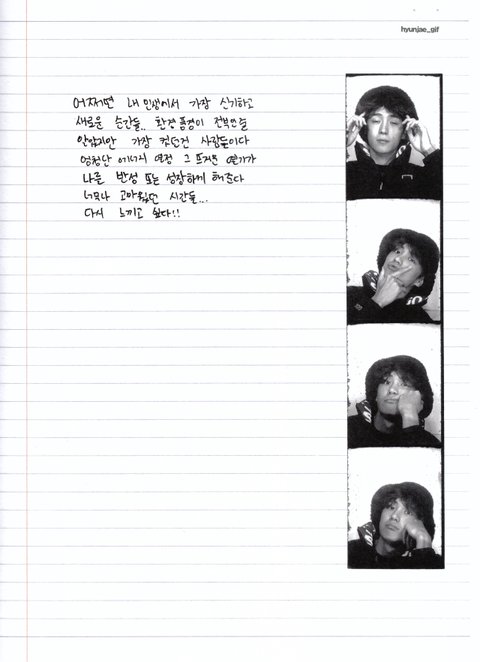 hyunjae_gif
어쩌면 내 인생에서 가장 신기하고
새로운 순간들.. 환경 풍경이 전부인줄
알았지만 가장 컸던건 사람들이다
엄청난 에너지 열정 그 뜨거운 열기가
나를 반성 또는 성장하게 해준다
너무나 고마웠던 시간들...
다시 느끼고 싶다!!